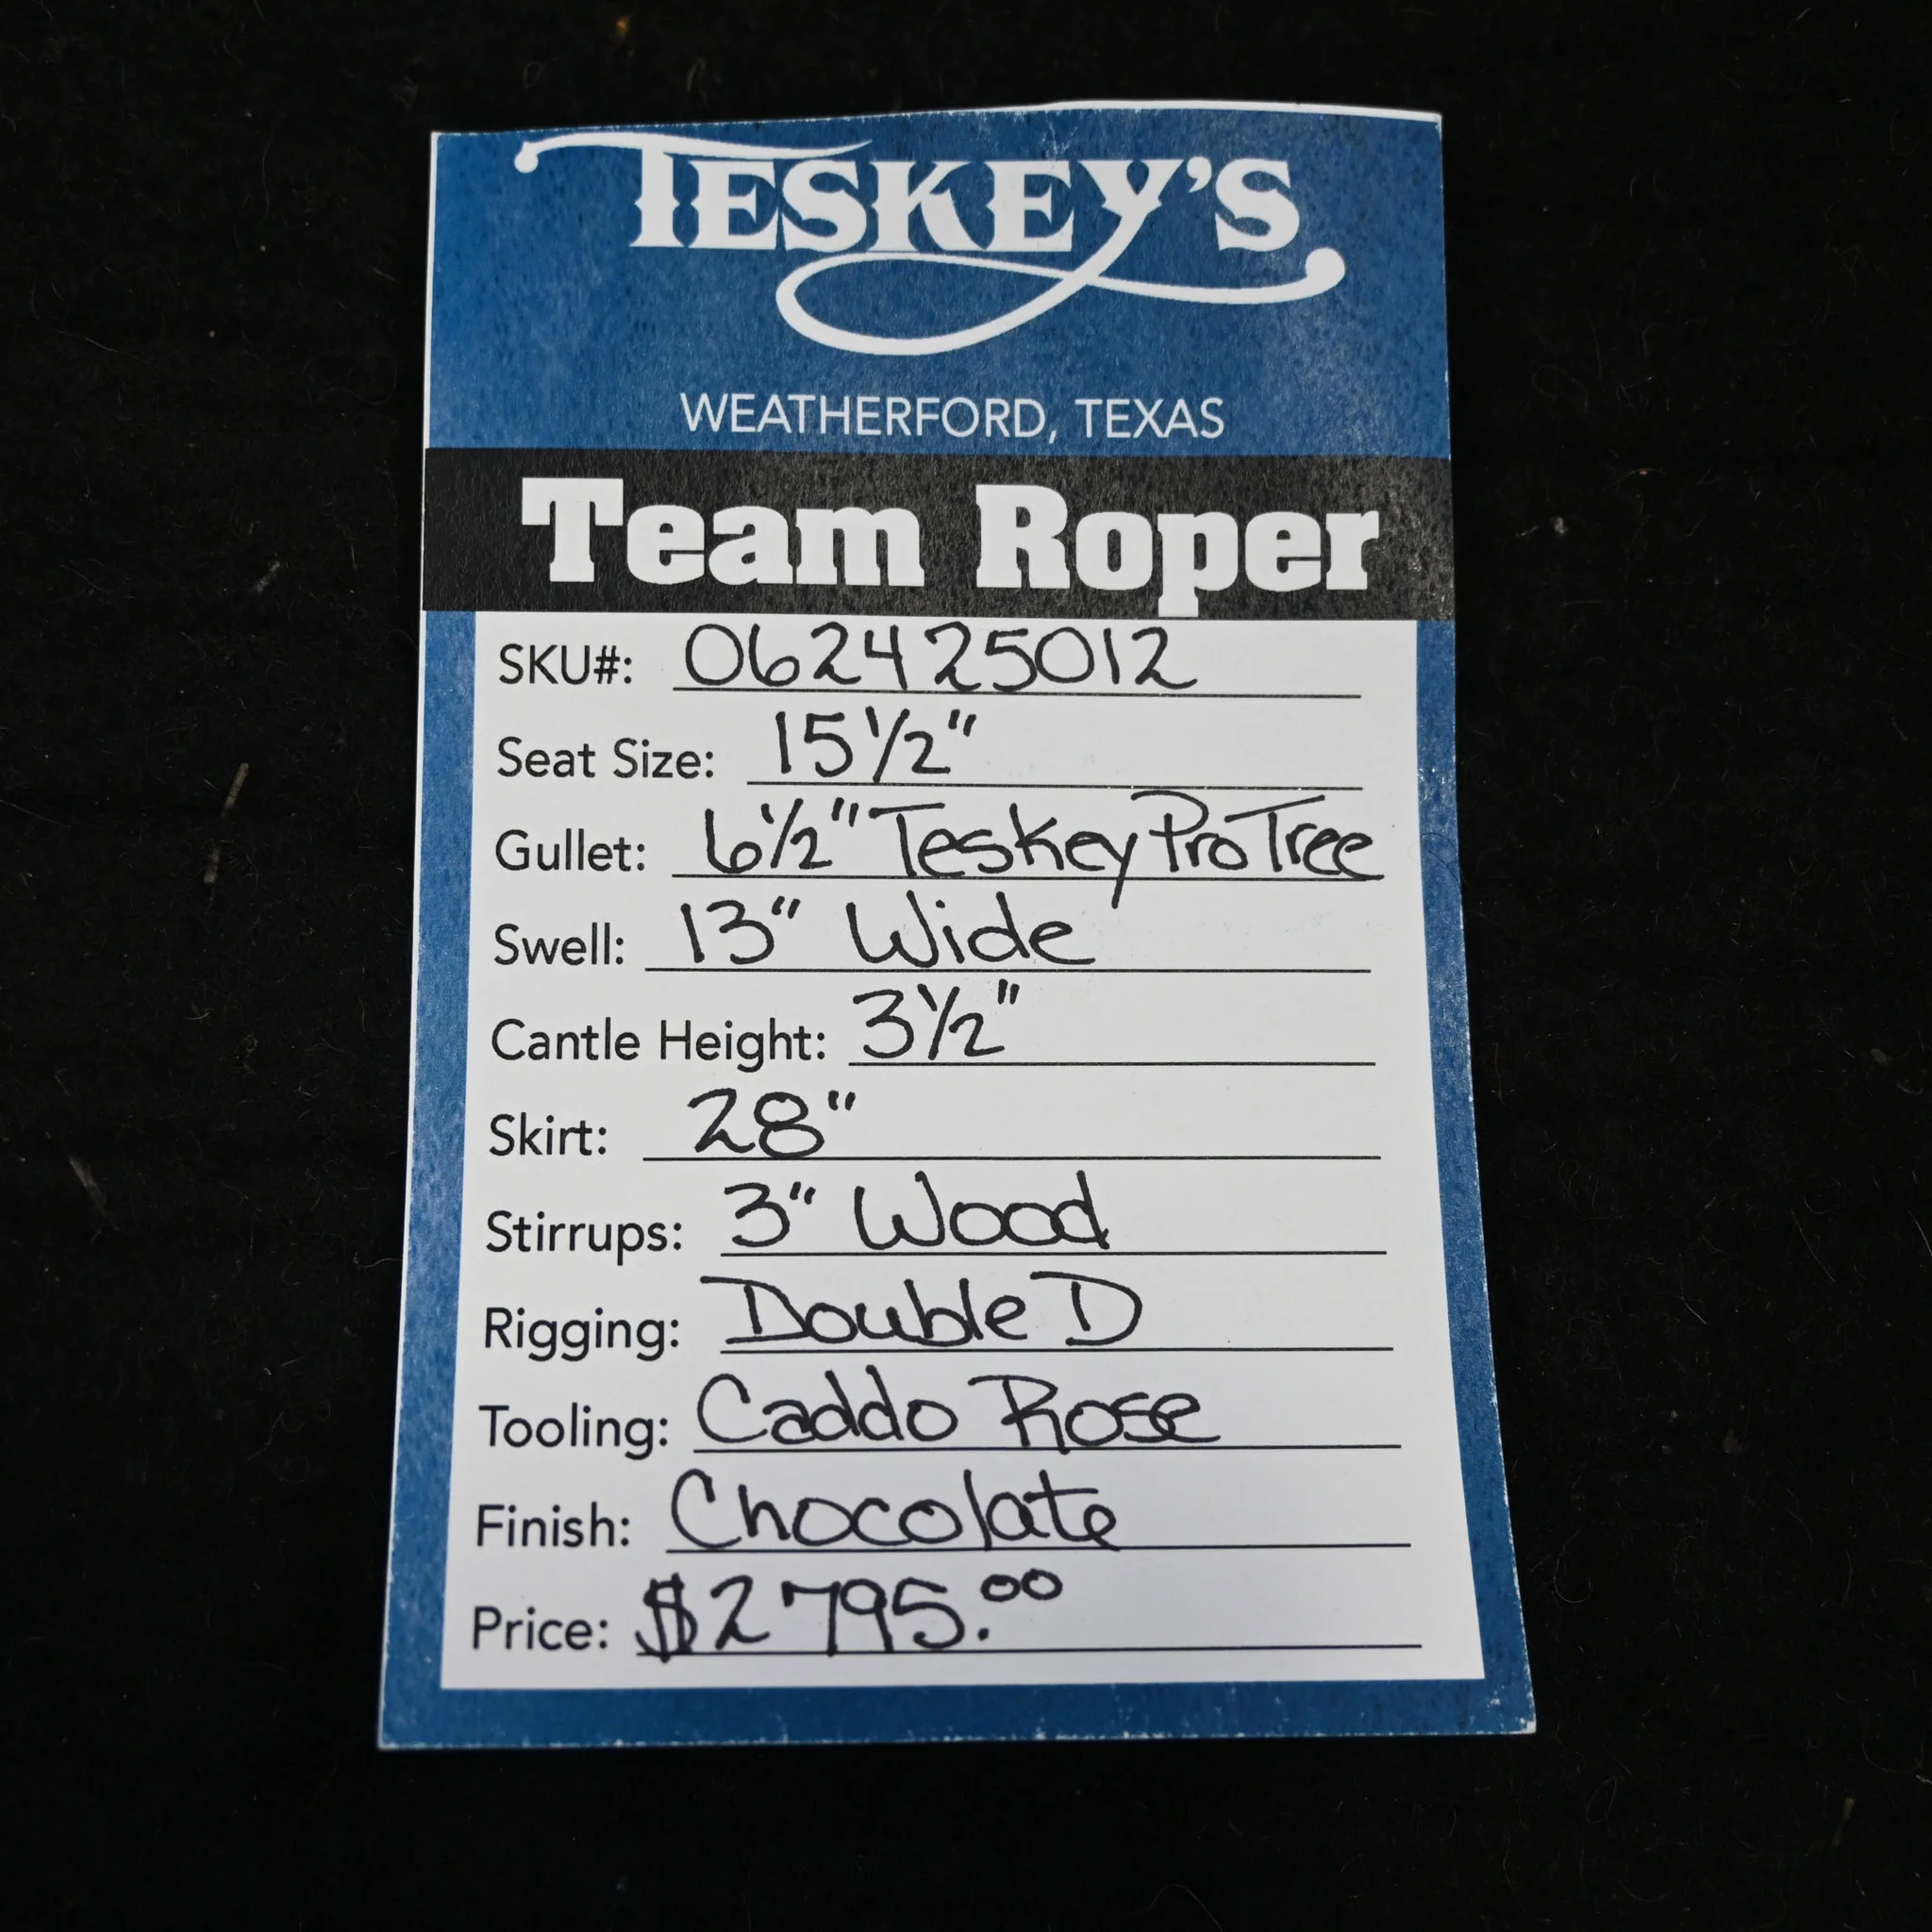 TESKEY'S
WEATHERFORD, TEXAS
Team Roper
SKU#: 062425012
Seat Size: 15 1/2"
Gullet: 6 1/2" Teskey Pro Tree
Swell: 13" Wide
Cantle Height: 3 1/2"
Skirt: 28"
Stirrups: 3" Wood
Rigging: Double D
Tooling: Caddo Rose
Finish: Chocolate
Price: $2795.00